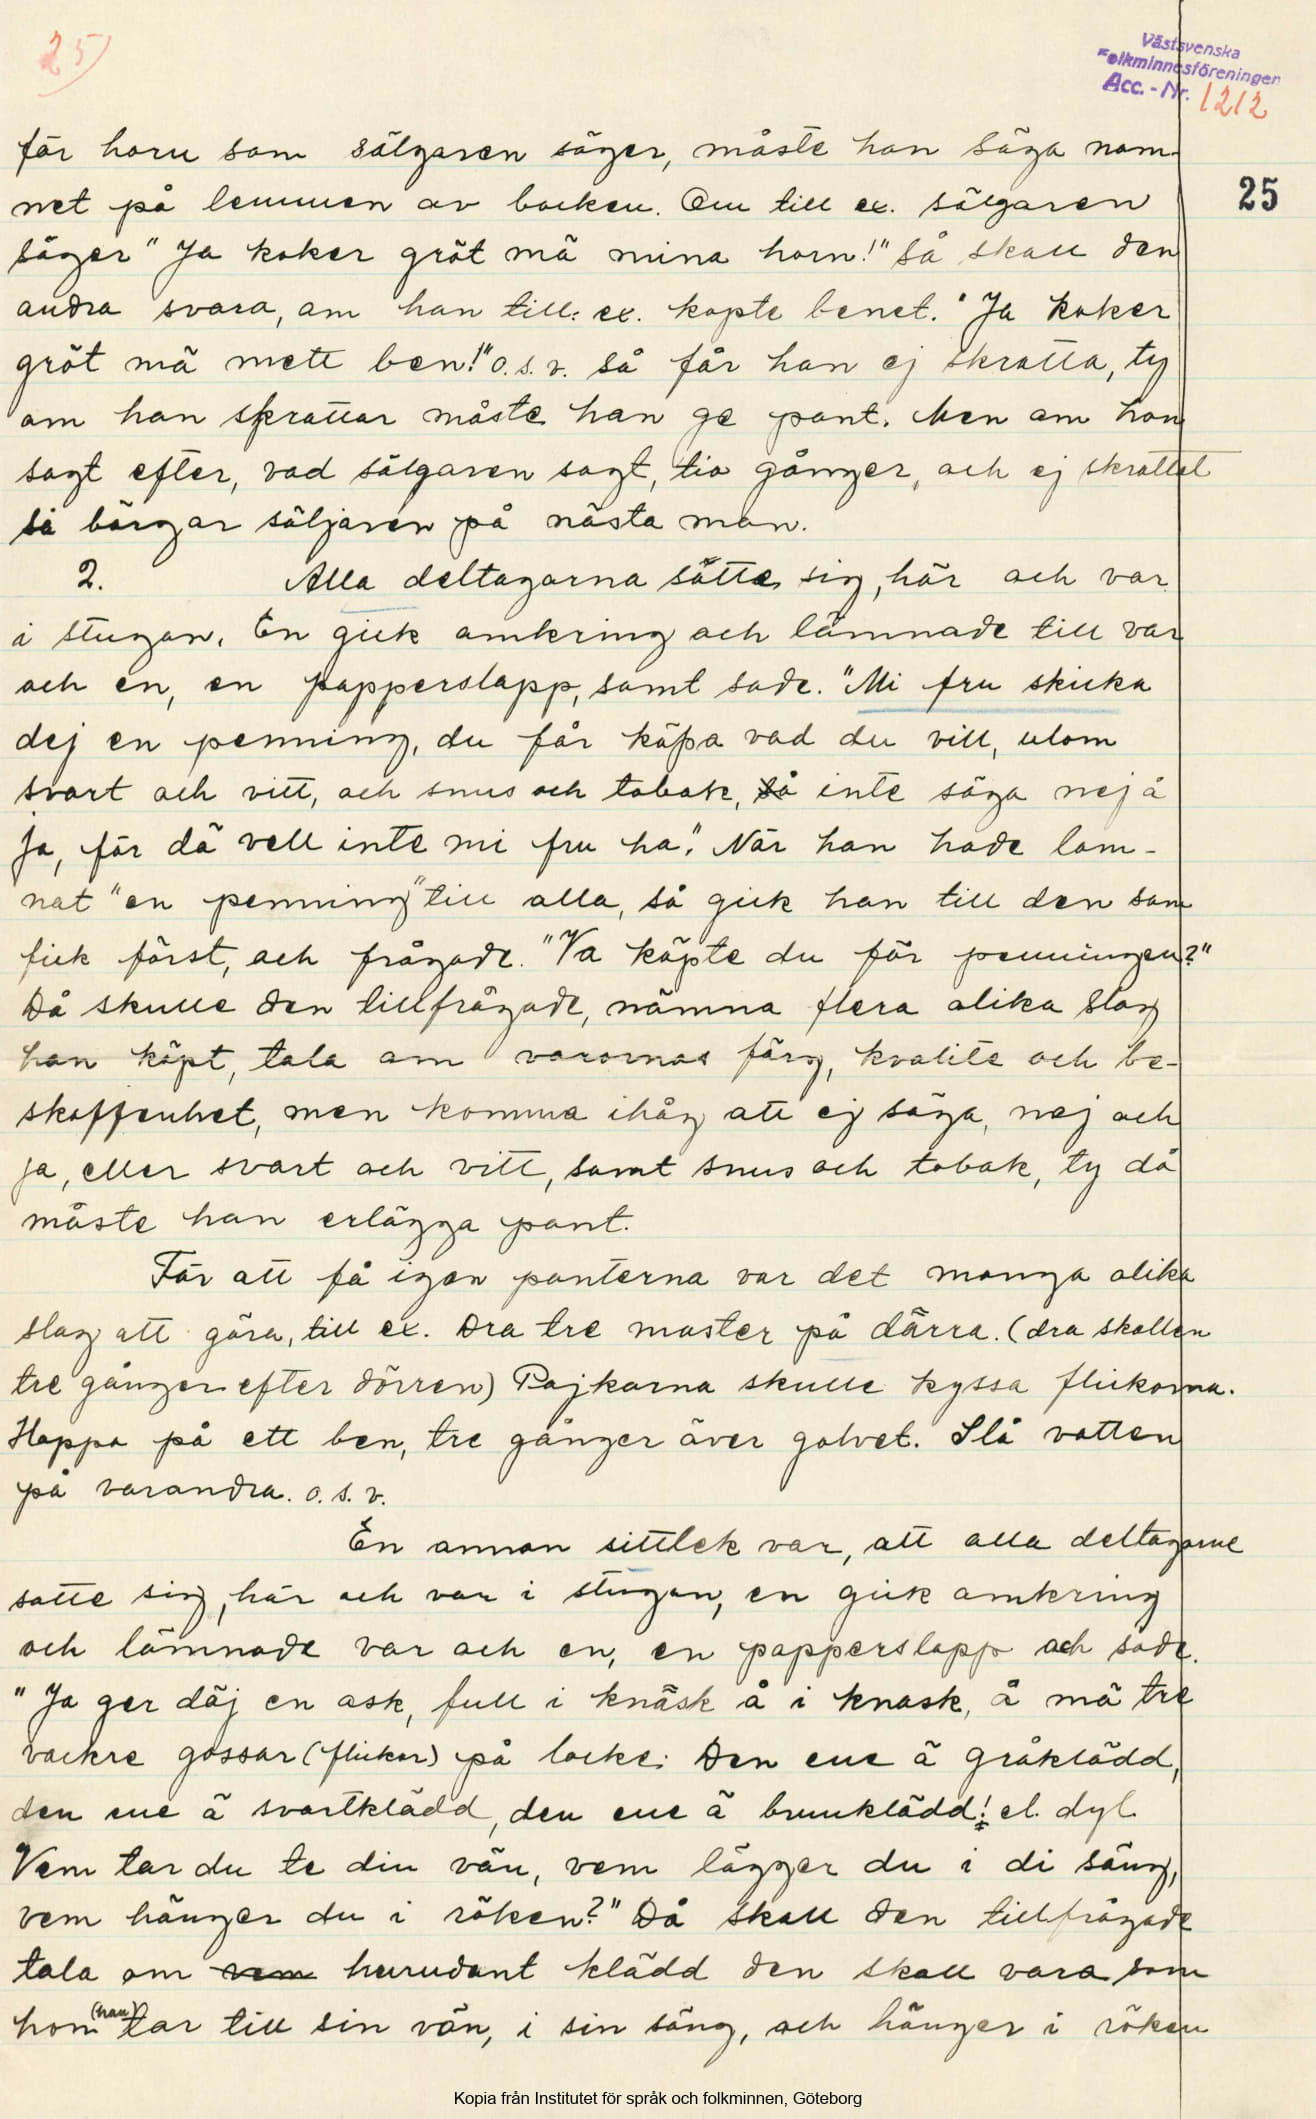 25)
Västsvenska
Folkminnesföreningen
Acc.-Nr. 1212
25
för horn som sälgaren säger, måste han säga nam-
net på lemmen av bocken. Om till ex. sälgaren
säger "Ja koker gröt mä mina horn!" så skall den
andra svara, om han till. ex. köpte benet. "Ja koker
gröt mä mett ben!" o.s.v. så får han ej skratta, ty
om han skrattar måste han ge pant. Men om han
sagt efter, vad sälgaren sagt, tio gånger, och ej skrattat
så börgar säljaren på nästa man.
2. Alla deltagarna sätta sig, här och var
i stugan. En gick omkring och lämnade till var
och en, en papperslapp, samt sade. "Mi fru skicka
dej en penning, du får köpa vad du vill, utom
svart och vitt, och snus och tobak, så inte säga nej å
ja, för dä vell inte mi fru ha." När han hade läm-
nat "en penning" till alla, så gick han till den som
fick först, och frågade. "Va köpte du för penningen?"
Då skulle den tillfrågade, nämna flera olika slag
han köpt, tala om varornas färg, kvalité och be-
skaffenhet, men komma ihåg att ej säga, nej och
ja, eller svart och vitt, samt snus och tobak, ty då
måste han erlägga pant.
För att få igen panterna var det många olika
slag att göra, till ex. Dra tre master på därra. (dra skallen
tre gånger efter dörren) Pojkarna skulle kyssa flickorna.
Hoppa på ett ben, tre gånger över golvet. Slå vatten
på varandra. o. s. v.
En annan sittlek var, att alla deltagarne
satte sig, här och var i stugan, en gick omkring
och lämnade var och en, en papperslapp och sade.
"Ja ger däj en ask, full i knäsk å i knask, å mä tre
vackre gossar (flickor) på locke: Den ene ä gråklädd,
den ene ä svartklädd, den ene ä brunklädd! el. dyl.
Vem tar du te din vän, vem lägger du i di säng,
vem hänger du i röken?" Då skall den tillfrågade
tala om vem hurudant klädd den skall vara som
hon (han) tar till sin vän, i sin säng, och hänger i röken
Kopia från Institutet för språk och folkminnen, Göteborg